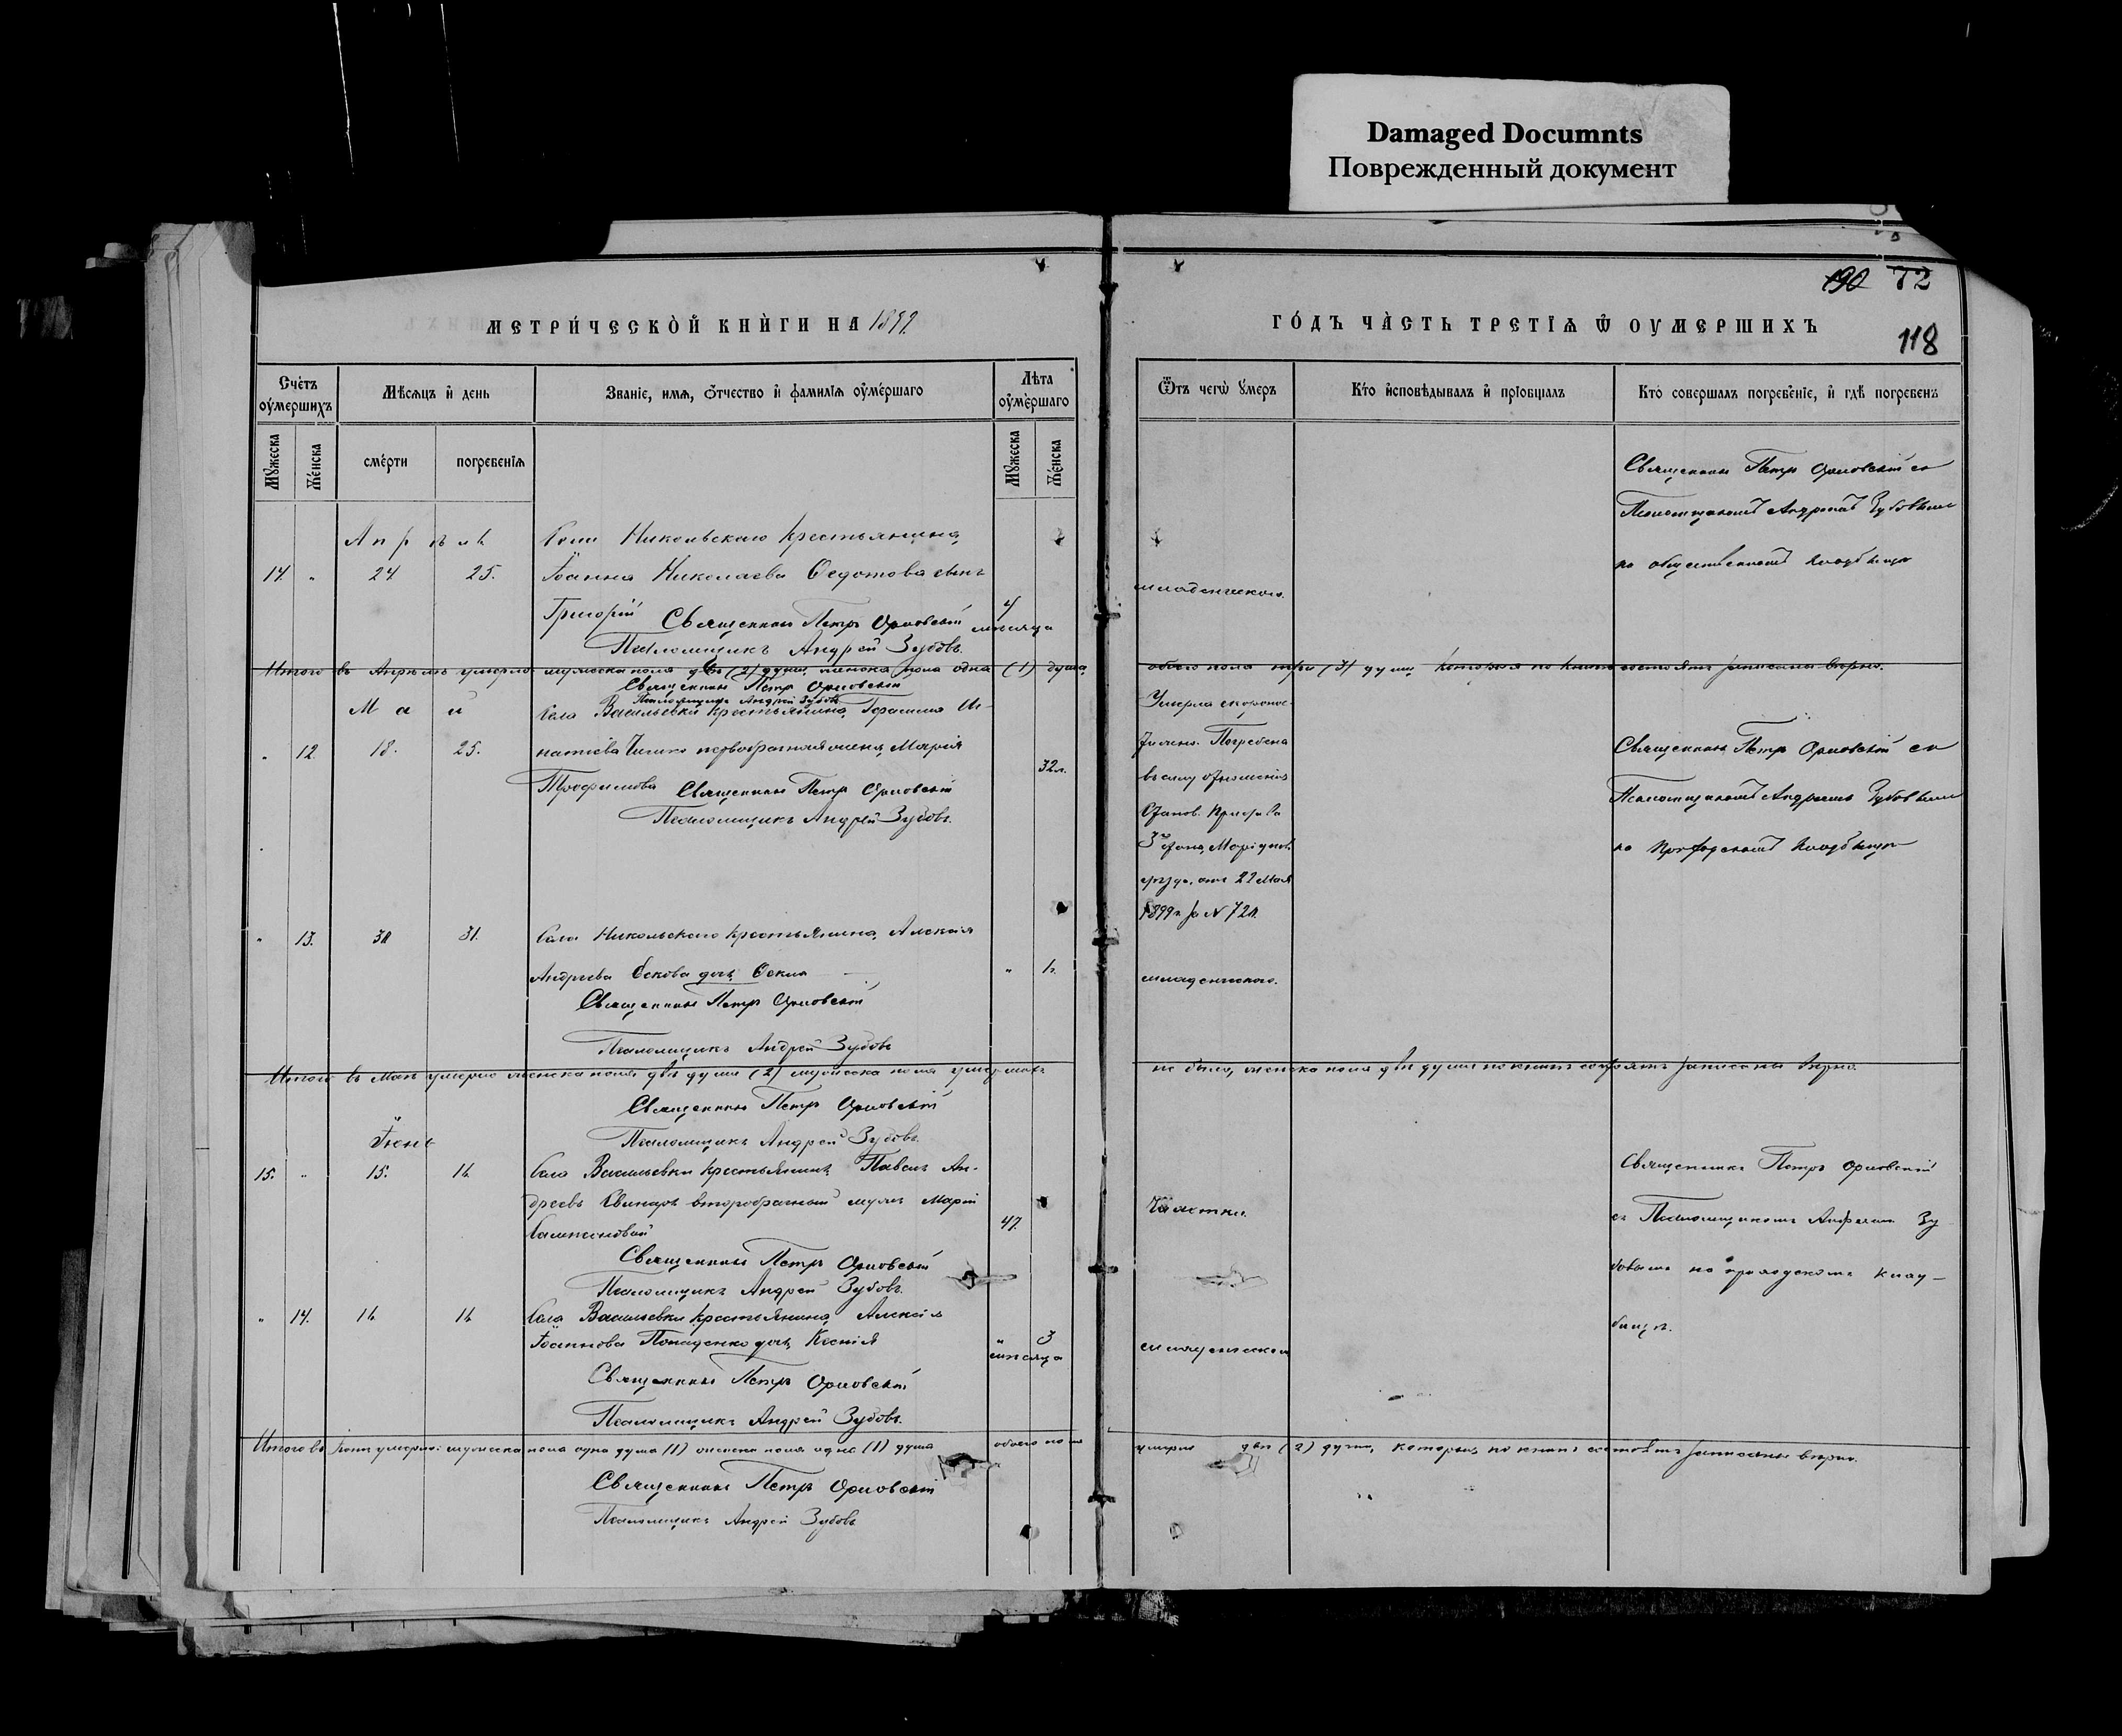 Damaged Documnts
Поврежденный документ
190 72
118
МЕТРИ́ЧЕСКО̀Й КНЍГИ НА 1899
ГО́ДЪ ЧА̀СТЬ ТРЕТІѦ Ѿ ОУМЕРШИХЪ
Счетъ оумершихъ
Мѣсѧцъ и день
Званіе, имѧ, отчество и фамиліѧ оумершаго
Лѣта оумершаго
Ѿтъ чегѡ умеръ
Кто исповѣдывалъ и пріобщалъ
Кто совершалъ погребеніе, и гдѣ погребенъ
Мужеска
Женска
смерти
погребеніѧ
Мужеска
Женска
Священникъ Петръ Орловскій съ
Псаломщикомъ Андреемъ Зубовымъ
на общественномъ кладбищѣ
Апрѣль
Села Никольскаго крестьянина
14. " 24 25. Іоанна Николаева Федотова сынъ
Григорій
4 мѣсяца
младенческаго.
Священникъ Петръ Орловскій
Псаломщикъ Андрей Зубовъ.
Итого въ Апрѣлѣ умерло мужеска пола двѣ (2) души, женска пола одна (1) душа,
обоего пола три (3) души, которыя по книгѣ состоятъ записаны вѣрно.
Священникъ Петръ Орловскій
Псаломщикъ Андрей Зубовъ
Май
Села Васильевки крестьянина Герасима Иг-
" 12. 18. 25. натіева первобрачная жена Марія
Трофимова
32 л.
Умерла скоропос-
тижно. Погребена
въ силу отношенія
Станов. Пристава
3го стана, Маріупол.
уѣзда, отъ 22 Мая
1899 г. за №
Священникъ Петръ Орловскій
Псаломщикъ Андрей Зубовъ.
Священникъ Петръ Орловскій съ
Псаломщикомъ Андреемъ Зубовымъ
на приходскомъ кладбищѣ
" 13. 30 31. Села Никольскаго крестьянина, Алексія
Андреева дочь Фекла
" 1г.
младенческаго.
Священникъ Петръ Орловскій
Псаломщикъ Андрей Зубовъ
Итого въ Маѣ умерло женска пола двѣ души (2) мужеска пола умершихъ
не было, женска пола двѣ души по книгѣ состоятъ записаны вѣрно.
Священникъ Петръ Орловскій
Псаломщикъ Андрей Зубовъ.
Іюнь
15. " 15. 16. Села Васильевки крестьянинъ Павелъ Ан-
дреевъ второбрачный мужъ Маріи
47.
Чахотки.
Священникъ Петръ Орловскій
Псаломщикъ Андрей Зубовъ.
Священникъ Петръ Орловскій
съ Псаломщикомъ Андреемъ Зу
бовымъ на приходскомъ клад-
бищѣ.
" 14. 16. 16 Села Васильевки крестьянина Алексія
Іоаннова дочь Ксенія
" 3
мѣсяца
младенческой
Священникъ Петръ Орловскій
Псаломщикъ Андрей Зубовъ.
Итого въ Іюнѣ умерло: мужеска пола одна душа (1) женска пола одна (1) душа обоего пола
умерло двѣ (2) души, которыя по книгѣ состоятъ записаны вѣрно.
Священникъ Петръ Орловскій
Псаломщикъ Андрей Зубовъ